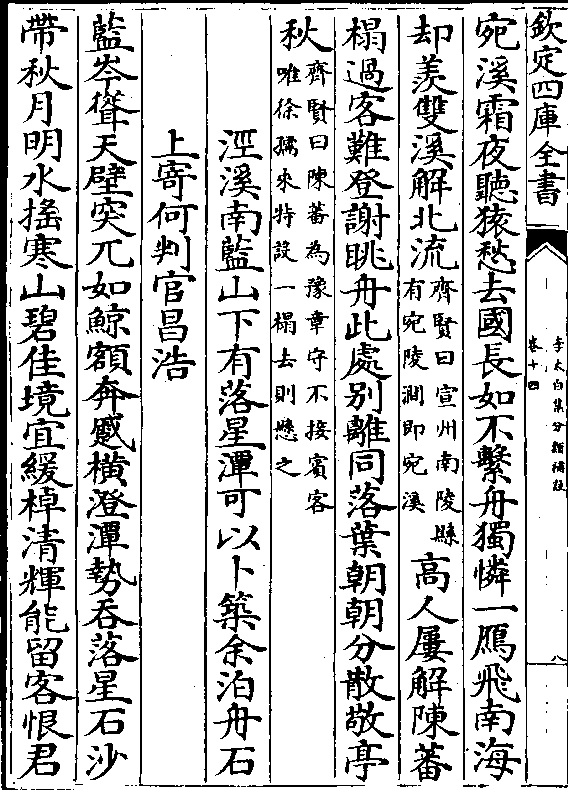 欽定四庫全書
李太白集分類補註
卷十四
八
宛溪霜夜聽猿愁去國長如不繫舟獨憐一鴈飛南海
却羨雙溪解北流
齊賢曰宣州南陵縣
有宛陵澗即宛溪
高人屢解陳蕃
榻過客難登謝眺舟此處别離同落葉朝朝分散敬亭
秋
齊賢曰陳蕃為豫章守不接賓客
唯徐孺來特設一榻去則懸之
涇溪南藍山下有落星潭可以卜築余泊舟石
上寄何判官昌浩
藍岑聳天壁突兀如鯨額奔蹙横澄潭勢吞落星石沙
帶秋月明水搖寒山碧佳境宜緩棹清輝能留客恨君